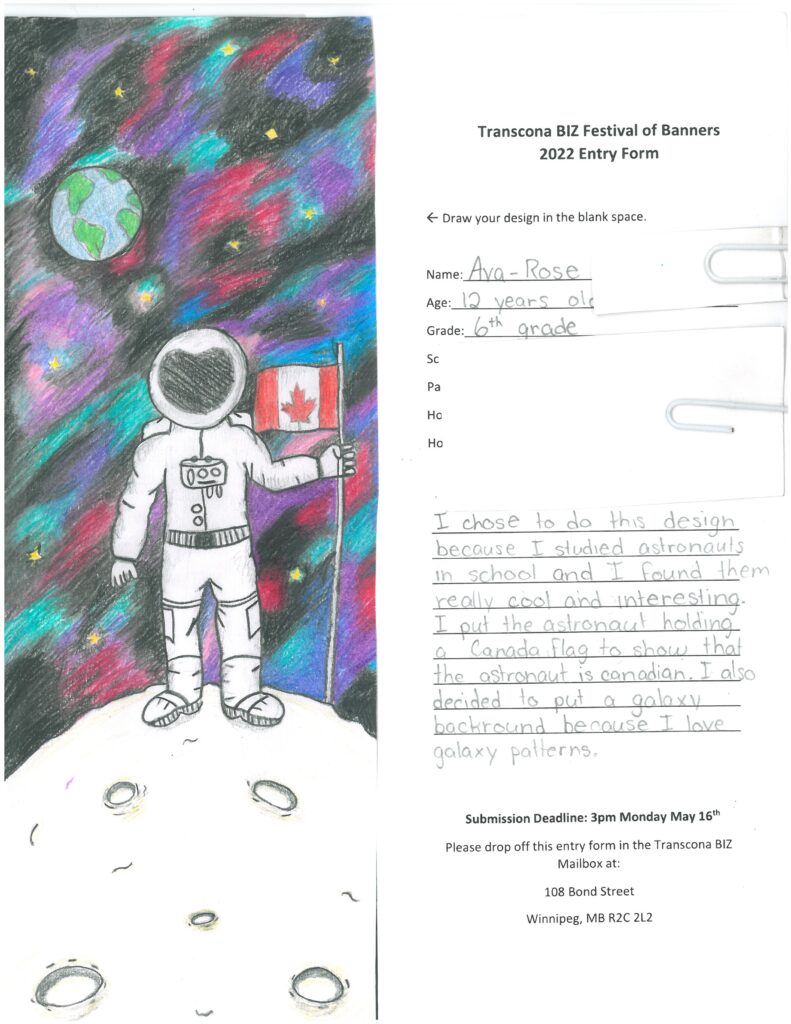 Transcona BIZ Festival of Banners
2022 Entry Form
← Draw your design in the blank space.
Name: Ava-Rose
Age: 12 years old
Grade: 6th grade
Sc
Pa
Ho
Ho
I chose to do this design
because I studied astronauts
in school and I found them
really cool and interesting.
I put the astronaut holding
a Canada flag to show that
the astronaut is canadian. I also
decided to put a galaxy
backround because I love
galaxy patterns.
Submission Deadline: 3pm Monday May 16th
Please drop off this entry form in the Transcona BIZ
Mailbox at:
108 Bond Street
Winnipeg, MB R2C 2L2